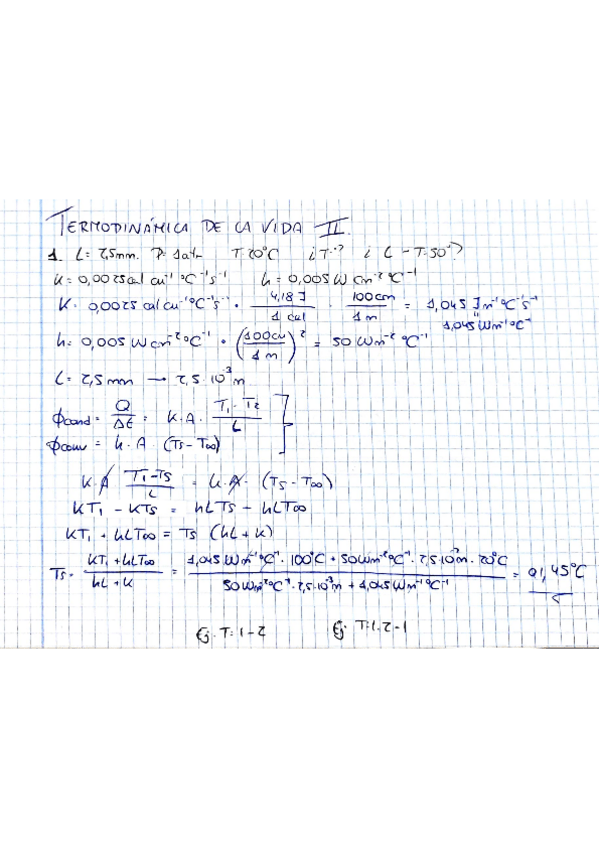 TERMODINÁMICA DE LA VIDA II.
1. L = 2,5mm. P = 1atm T 20°C ¿T? ¿L - T=50°?
K = 0,0025 cal cm⁻¹ °C⁻¹ s⁻¹ h = 0,005 W cm⁻² °C⁻¹
K = 0,0025 cal cm⁻¹ °C⁻¹ s⁻¹ · 4,18 J / 1 cal · 100cm / 1 m = 1,045 J m⁻¹ °C⁻¹ s⁻¹
1,045 W m⁻¹ °C⁻¹
h = 0,005 W cm⁻² °C⁻¹ · (100cm / 1 m)² = 50 W m⁻² °C⁻¹
L = 2,5 mm → 2,5·10⁻³ m
ϕcond = Q/Δt = K·A· (T₁ - T₂)/L
ϕconv = h·A·(Ts - T∞)
K·A (T₁ - Ts)/L = h·A·(Ts - T∞)
KT₁ - KTs = hLTs - hLT∞
KT₁ + hLT∞ = Ts (hL + K)
Ts = (KT₁ + hLT∞)/(hL + K) = (1,045 W m⁻¹ °C⁻¹ · 100°C + 50 W m⁻² °C⁻¹ · 2,5·10⁻³ m · 20°C)/(50 W m⁻² °C⁻¹ · 2,5·10⁻³ m + 1,045 W m⁻¹ °C⁻¹) = 91,45°C
Ej. T: 1-2 Ej. T: 1.2-1